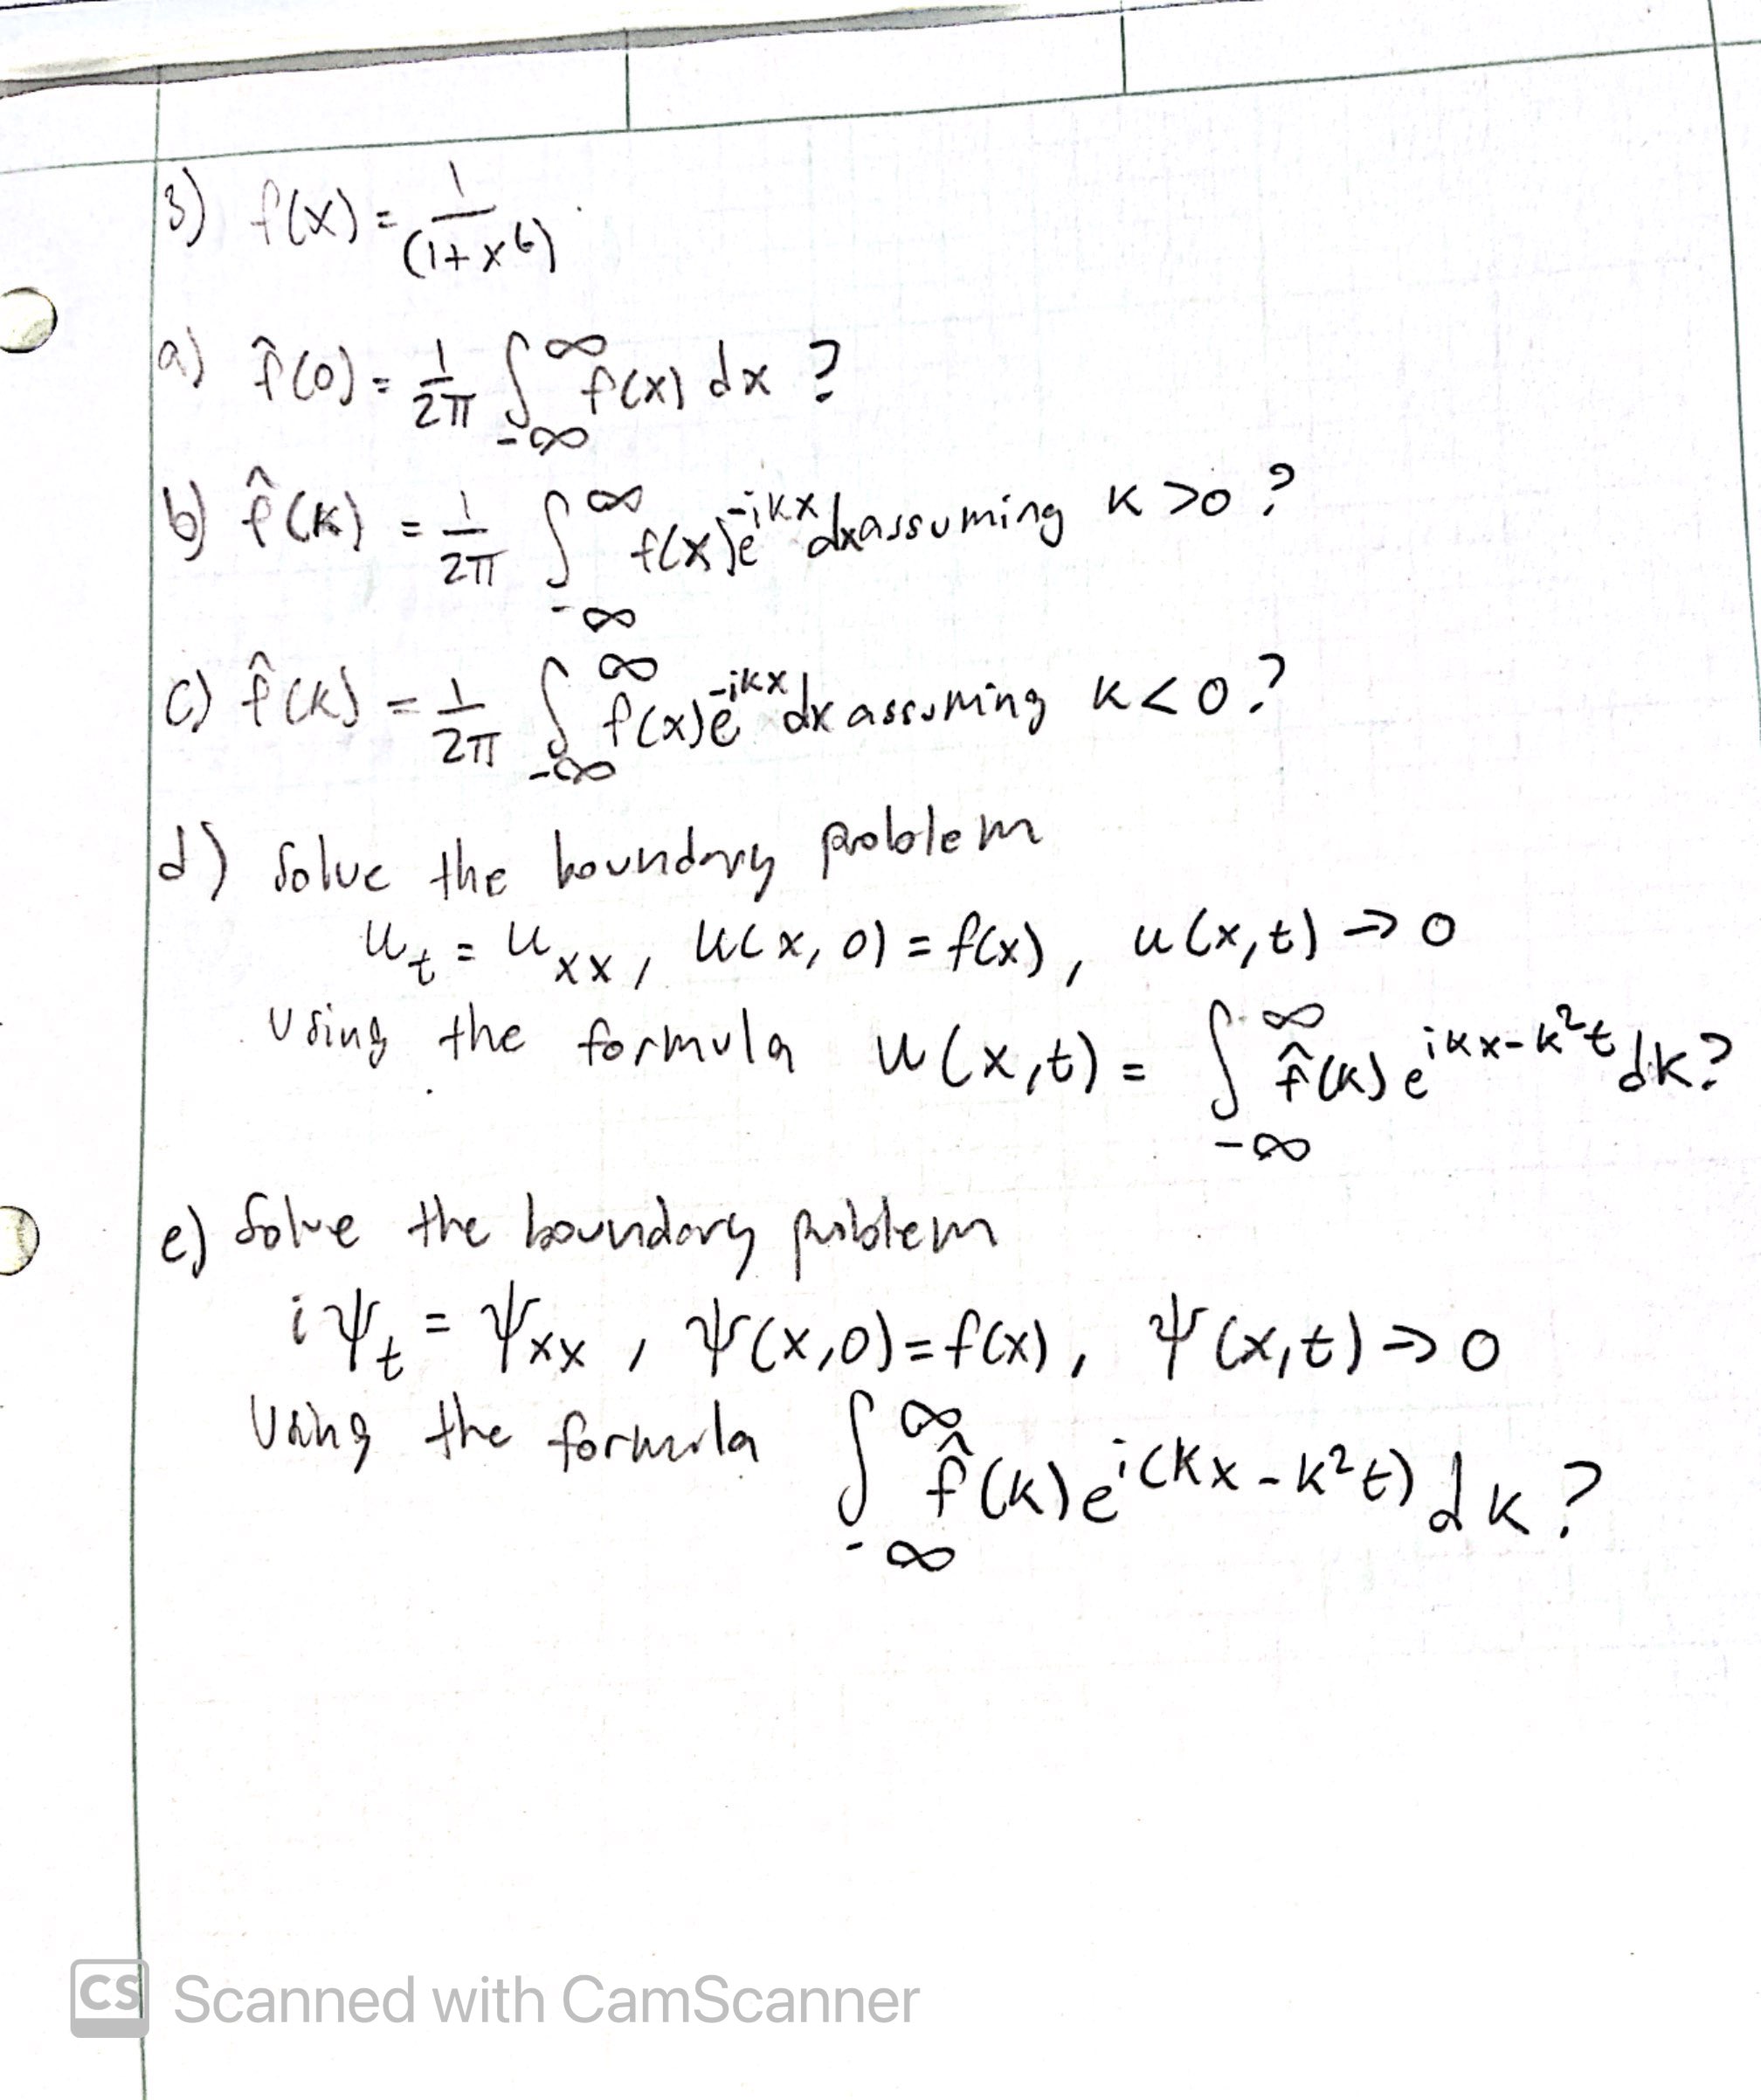 3) f(x) = 1/(1+x^6)
a) f̂(0) = 1/2π ∫_{-∞}^{∞} f(x) dx ?
b) f̂(k) = 1/2π ∫_{-∞}^{∞} f(x)e^{-ikx} dx assuming k >0 ?
c) f̂(k) = 1/2π ∫_{-∞}^{∞} f(x)e^{-ikx} dx assuming k<0 ?
d) Solve the boundary problem
u_t = u_xx, u(x,0) = f(x), u(x,t) → 0
using the formula u(x,t) = ∫_{-∞}^{∞} f̂(k) e^{ikx-k²t} dk?
e) Solve the boundary problem
iψ_t = ψ_xx, ψ(x,0)=f(x), ψ(x,t) → 0
Using the formula ∫_{-∞}^{∞} f̂(k)e^{i(kx-k²t)} dk?
CS Scanned with CamScanner